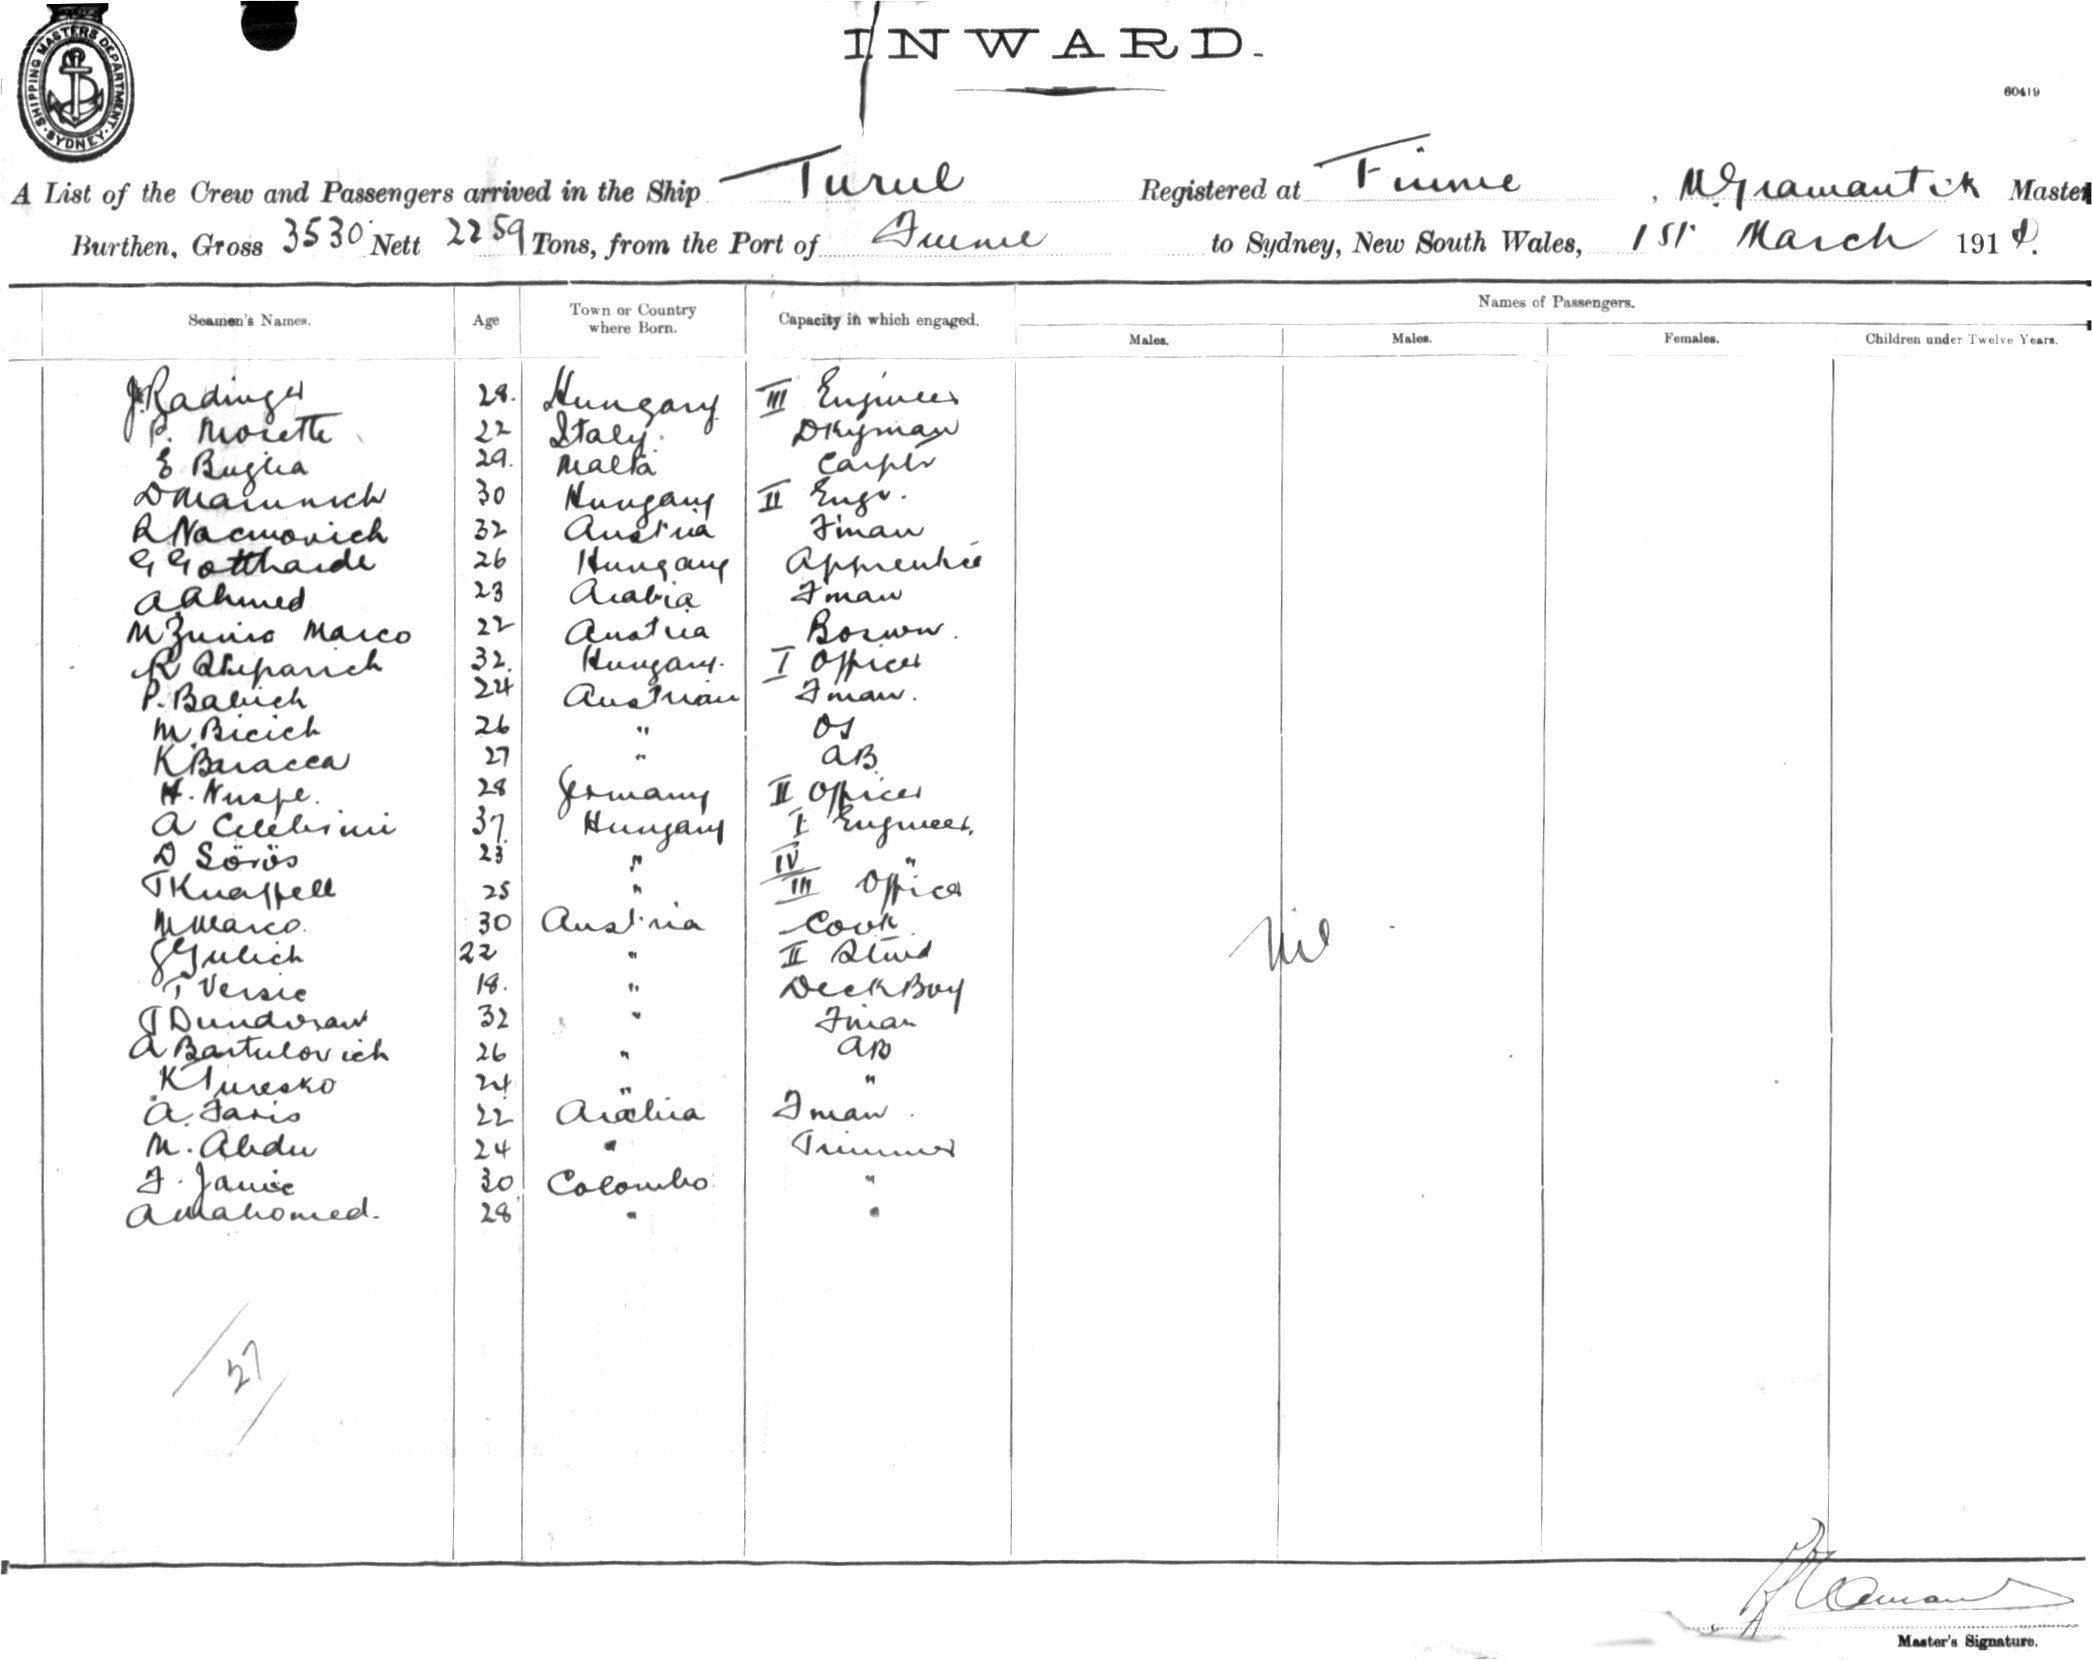 SHIPPING MASTERS DEPARTMENT. SYDNEY
INWARD.
60419
A List of the Crew and Passengers arrived in the Ship Turul Registered at Fiume, M. Gramantik Master
Burthen, Gross 3530 Nett 2259 Tons, from the Port of Fiume to Sydney, New South Wales, 1st March 191
Names of Passengers.
Seamen's Names. Age Town or Country where Born. Capacity in which engaged. Males. Males. Females. Children under Twelve Years.
J. Radinger 28. Hungary III Engineer
P. Morette 22 Italy. Dkyman
E Buglia 29. Malta Carptr
D 30 Hungary II Engr.
R Nacinovich 32 Austria Fman
G Gottharde 26 Hungary Apprentice
A. Ahmed 23 Arabia Fman
M Zunino Marco 22 Austria Boswn.
R Stiparich 32. Hungary. I Officer
P. Babich 24 Austrian Fman.
M. Bicich 26 " OS
K Baracca 27 " AB
H. 28 Germany II Officer
A Celebrini 37. Hungary I Engineer.
D Sörös 23 " IV "
T Knaffell 25 " III Officer
M Marco. 30 Austria Cook
G Gulich 22 " II Stwd
T Versic 18. " Deck Boy
T Dundoran 32 " Fman
A Bartulovich 26 " AB
K Turesko 24 " "
A. Faris 22 Arabia Fman.
M. Abdu 24 " Trimmer
F. Janic 30 Colombo "
A Mahomed. 28 " "
Nil
27
Master's Signature.